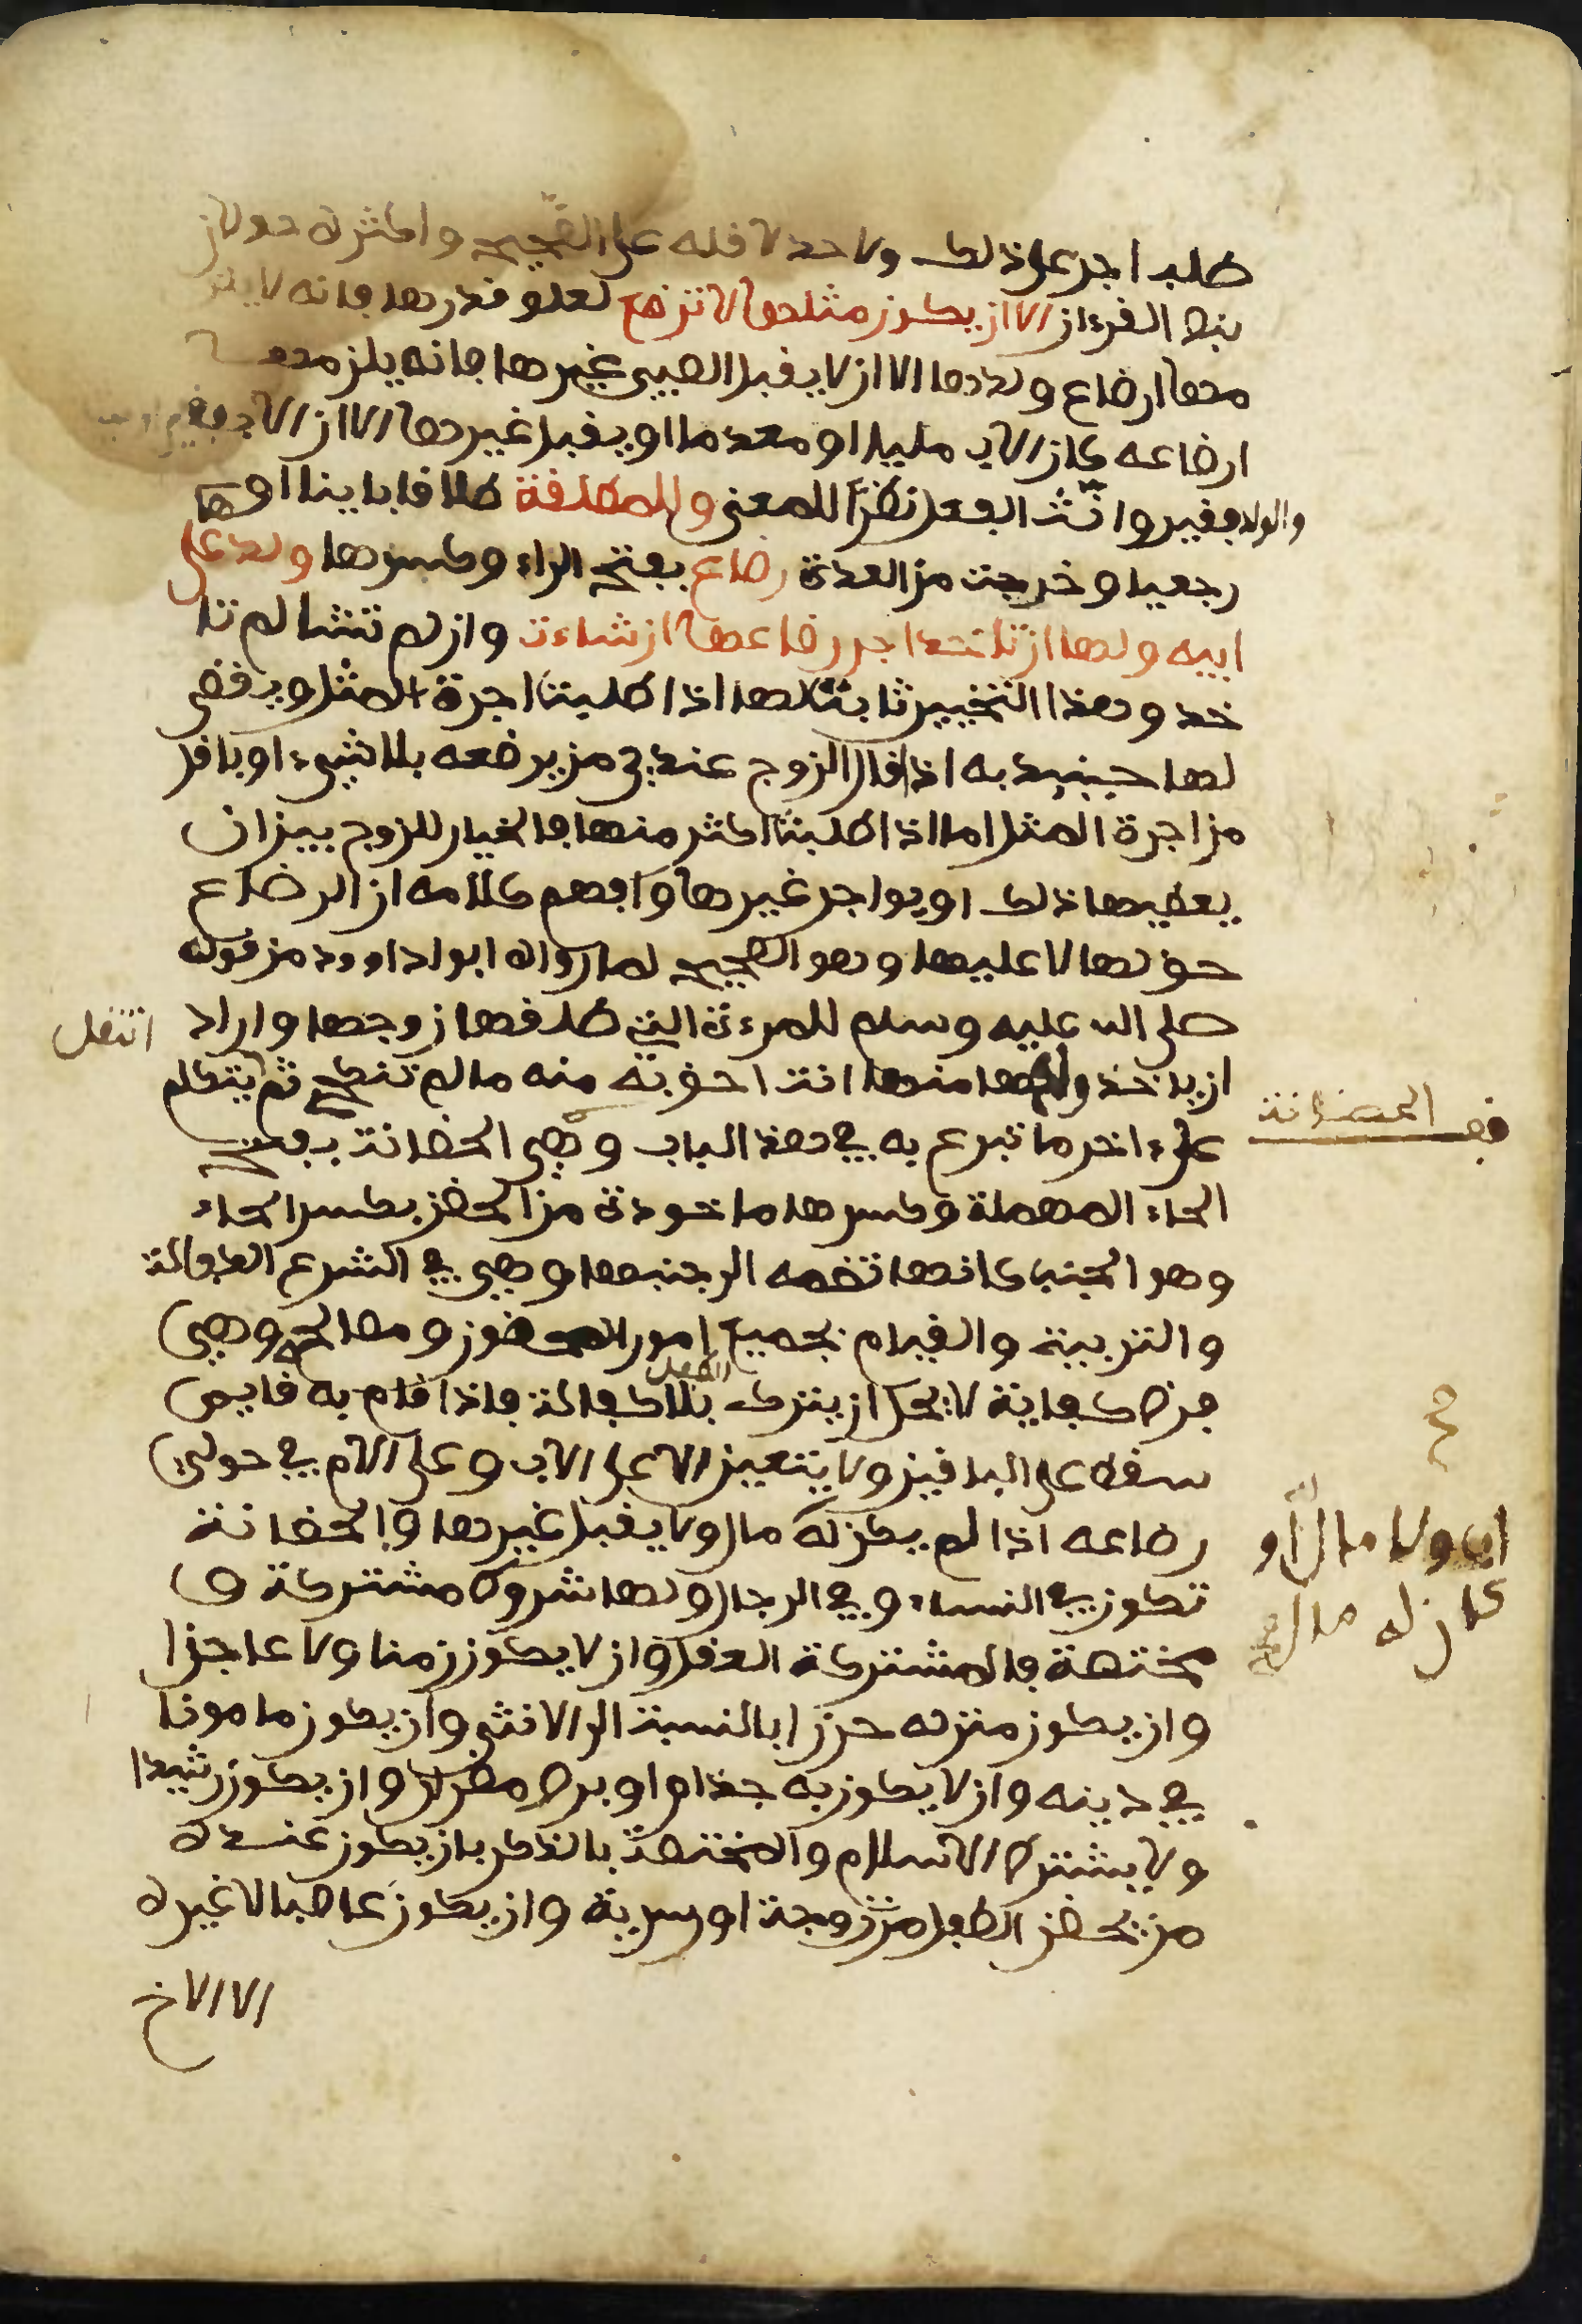 طلب اجر على ذلك ولا حد لاقله على الصحيح واكثره حولان
بنص القرءان الا ان يكون مثلها لا ترضع لعلو قدرها فانه لا يلز
مها ارضاع ولدها الا ان لا يقبل الصبي غيرها فانه يلزمها
ارضاعه كان الاب مليا او معدما او يقبل غيرها الا ان الاب فقير
والولد فقير وانّث الفعل نظرا للمعنى وللمطلقة طلاقا باينا او
رجعيا وخرجت من العدة رضاع بفتح الراء وكسرها ولدها على
ابيه ولها ان تاخذ اجر رضاعها ان شاءت وان لم تشا لم تا
خذ وهذا التخيير ثابت لها اذا طلبت اجرة المثل ويقضى
لها حينيذ به اذا قال الزوج عندي من يرضعه بلا شيء او باقل
من اجرة المثل اما اذا طلبت اكثر منها فالخيار للزوج بين ان
يعطيها ذلك او يواجر غيرها وافهم كلامه ان الرضاع
حق لها لا عليها وهو الصحيح لما رواه ابوا داوود من قوله
صلى الله عليه وسلم للمرءة التي طلقها زوجها واراد
انتقل
ان ياخذ ولدها منها انت احق به منه ما لم تنكح ثم يتكلم
قف الحضانة
على ءاخر ما تبرع به في هذا الباب وهي الحضانة بفتح
الحاء المهملة وكسرها ماخوذة من الحضن بكسر الحاء
وهو الجنب كانها تضمه الى جنبها وهي في الشرع الكفالة
والتربية والقيام بجميع امور المحضون ومصالحه وهي
فرض كفاية لا يحل ان يترك الطفل بلا كفالة فاذا قام به قايم
سقط على الباقين ولا يتعين الا على الاب وعلى الام في حولي
رضاعه اذا لم يكن له مال ولا يقبل غيرها والحضانة
اب ولا مال او
كان له مال
تكون في النساء وفي الرجال ولها شروط مشتركة و
مختصة فالمشتركة العقل وان لا يكون زمنا ولا عاجزا
وان يكون منزله حرزا بالنسبة الى الانثى وان يكون مامونا
في دينه وان لا يكون به جذام او برص مضران وان يكون رشيدا
ولا يشترط الاسلام والمختصة بالذكر بان يكون عنده
من يحضن الطفل من زوجة او سرية وان يكون عاصبا لا غيره
الا الاخ